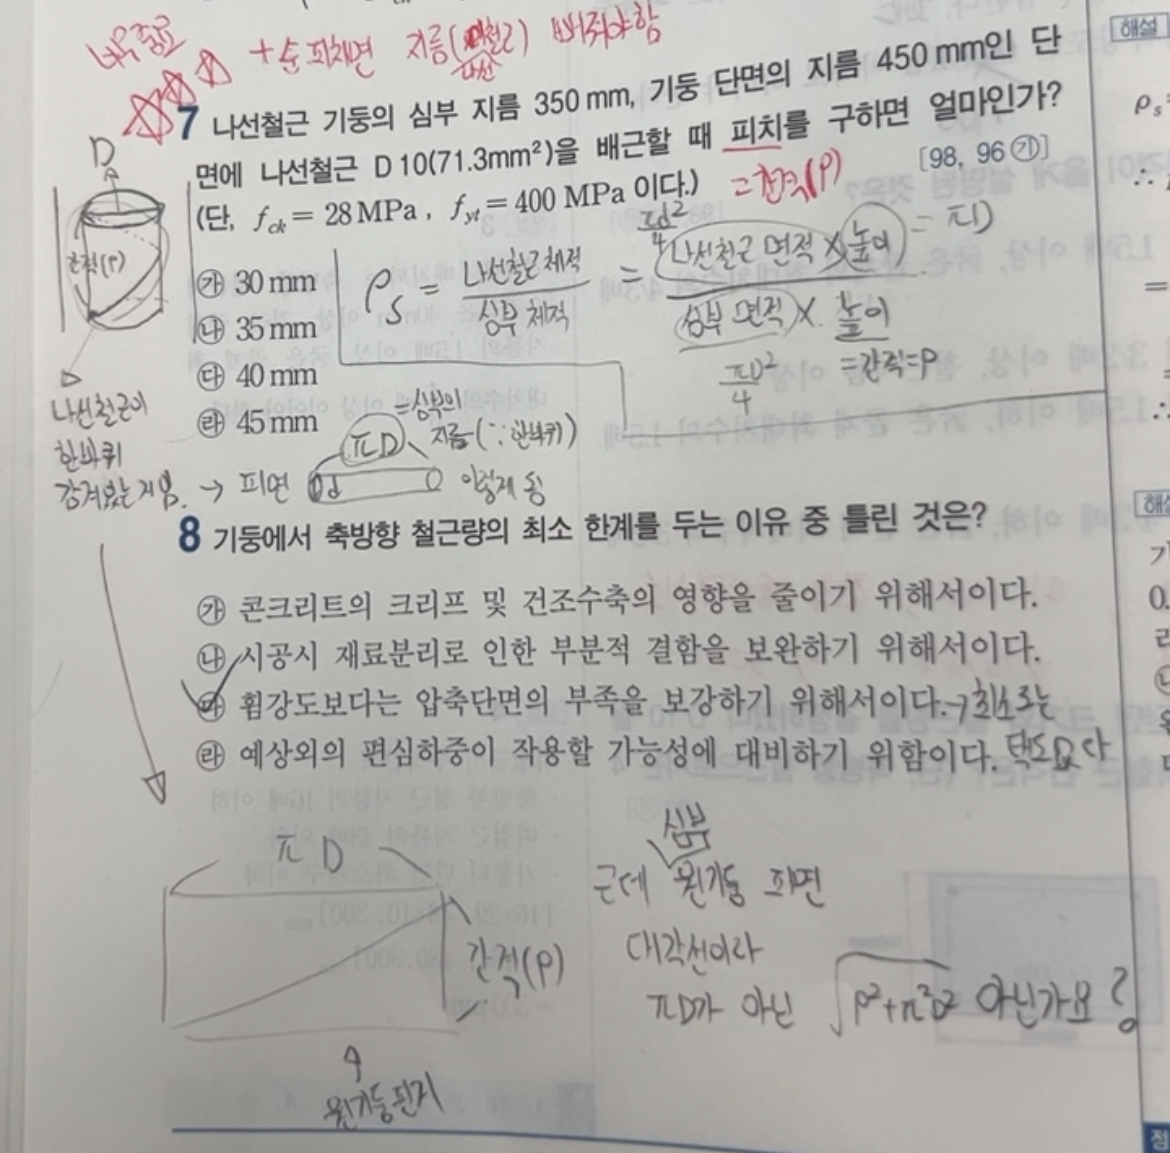 너무중요
+순피치면 지름(나선철근) 빼줘야함
7 나선철근 기둥의 심부 지름 350 mm, 기둥 단면의 지름 450 mm인 단
면에 나선철근 D 10(71.3mm²)을 배근할 때 피치를 구하면 얼마인가?
(단, f_ck = 28 MPa, f_yt = 400 MPa 이다.) [98, 96 ㉮]
=간격(P)
D
간격(P)
㉮ 30 mm
㉯ 35 mm
㉰ 40 mm
㉱ 45 mm
ρs = 나선철근 체적 / 심부 체적 = 나선철근 면적 × 높이 / 심부 면적 × 높이
πd²/4
= πD
πD²/4
=간격=P
나선철근이
한바퀴
감겨있는지임. → 피면
d
πD
=심부의
지름(∵한바퀴)
이렇게 됨
8 기둥에서 축방향 철근량의 최소 한계를 두는 이유 중 틀린 것은?
㉮ 콘크리트의 크리프 및 건조수축의 영향을 줄이기 위해서이다.
㉯ 시공시 재료분리로 인한 부분적 결함을 보완하기 위해서이다.
㉰ 휨강도보다는 압축단면의 부족을 보강하기 위해서이다. → 최소로는
㉱ 예상외의 편심하중이 작용할 가능성에 대비하기 위함이다. 택도없다
πD
간격(P)
원기둥 핀지
심부
근데 원기둥 피면
대각선이라
πD가 아닌 √P²+π²D² 아닌가요?
해설
ρs
∴
=
∴
해설
기
0.
정